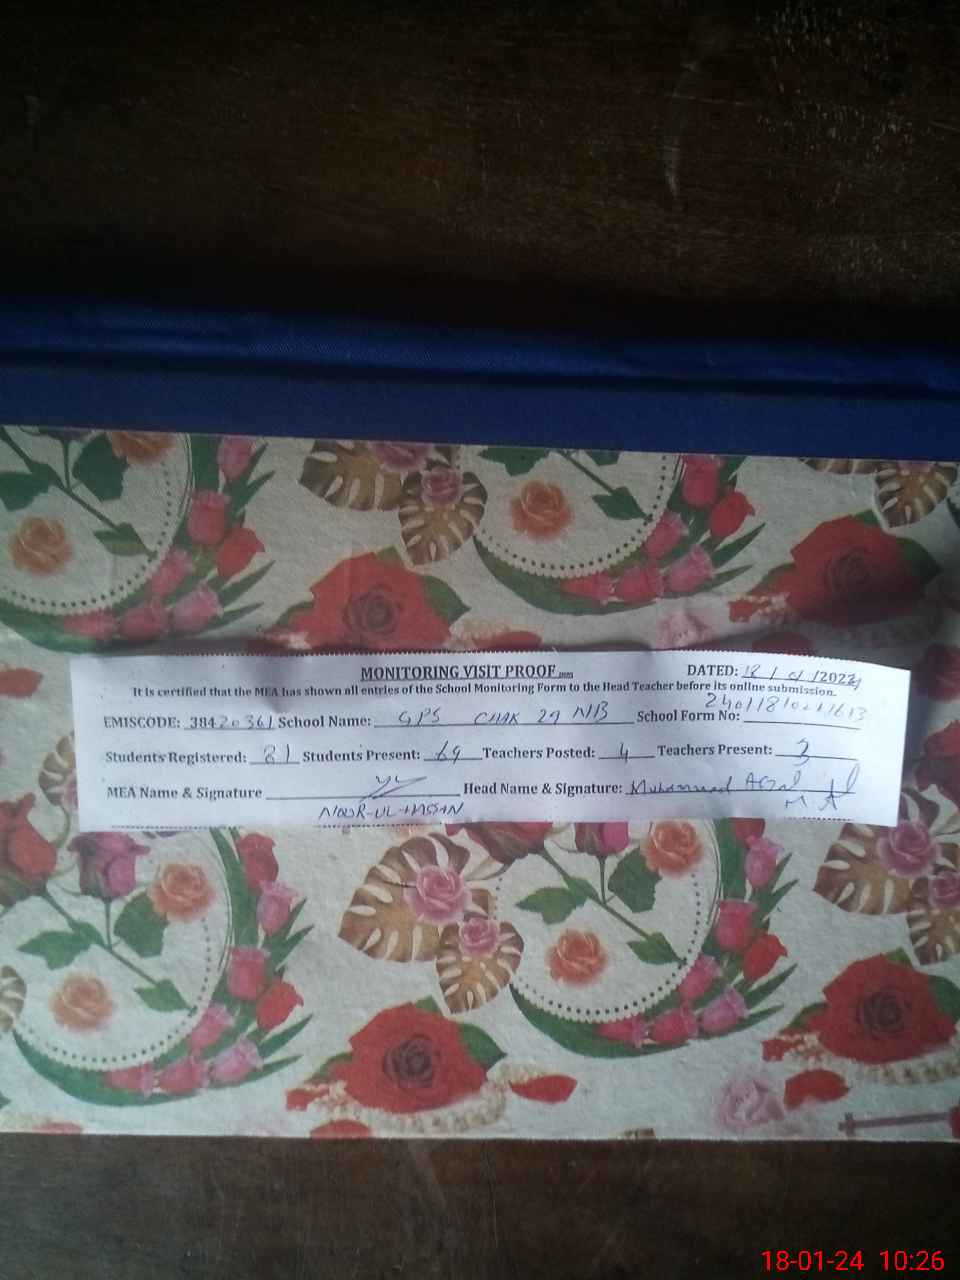 MONITORING VISIT PROOF
DATED: 18/01/2024
It is certified that the MEA has shown all entries of the School Monitoring Form to the Head Teacher before its online submission.
EMISCODE: 38420361 School Name: GPS CHAK 29 NB School Form No:
Students Registered: 81 Students Present: 69 Teachers Posted: 4 Teachers Present: 3
MEA Name & Signature Head Name & Signature: Muhammad
NOOR-UL-HASSAN
18-01-24 10:26